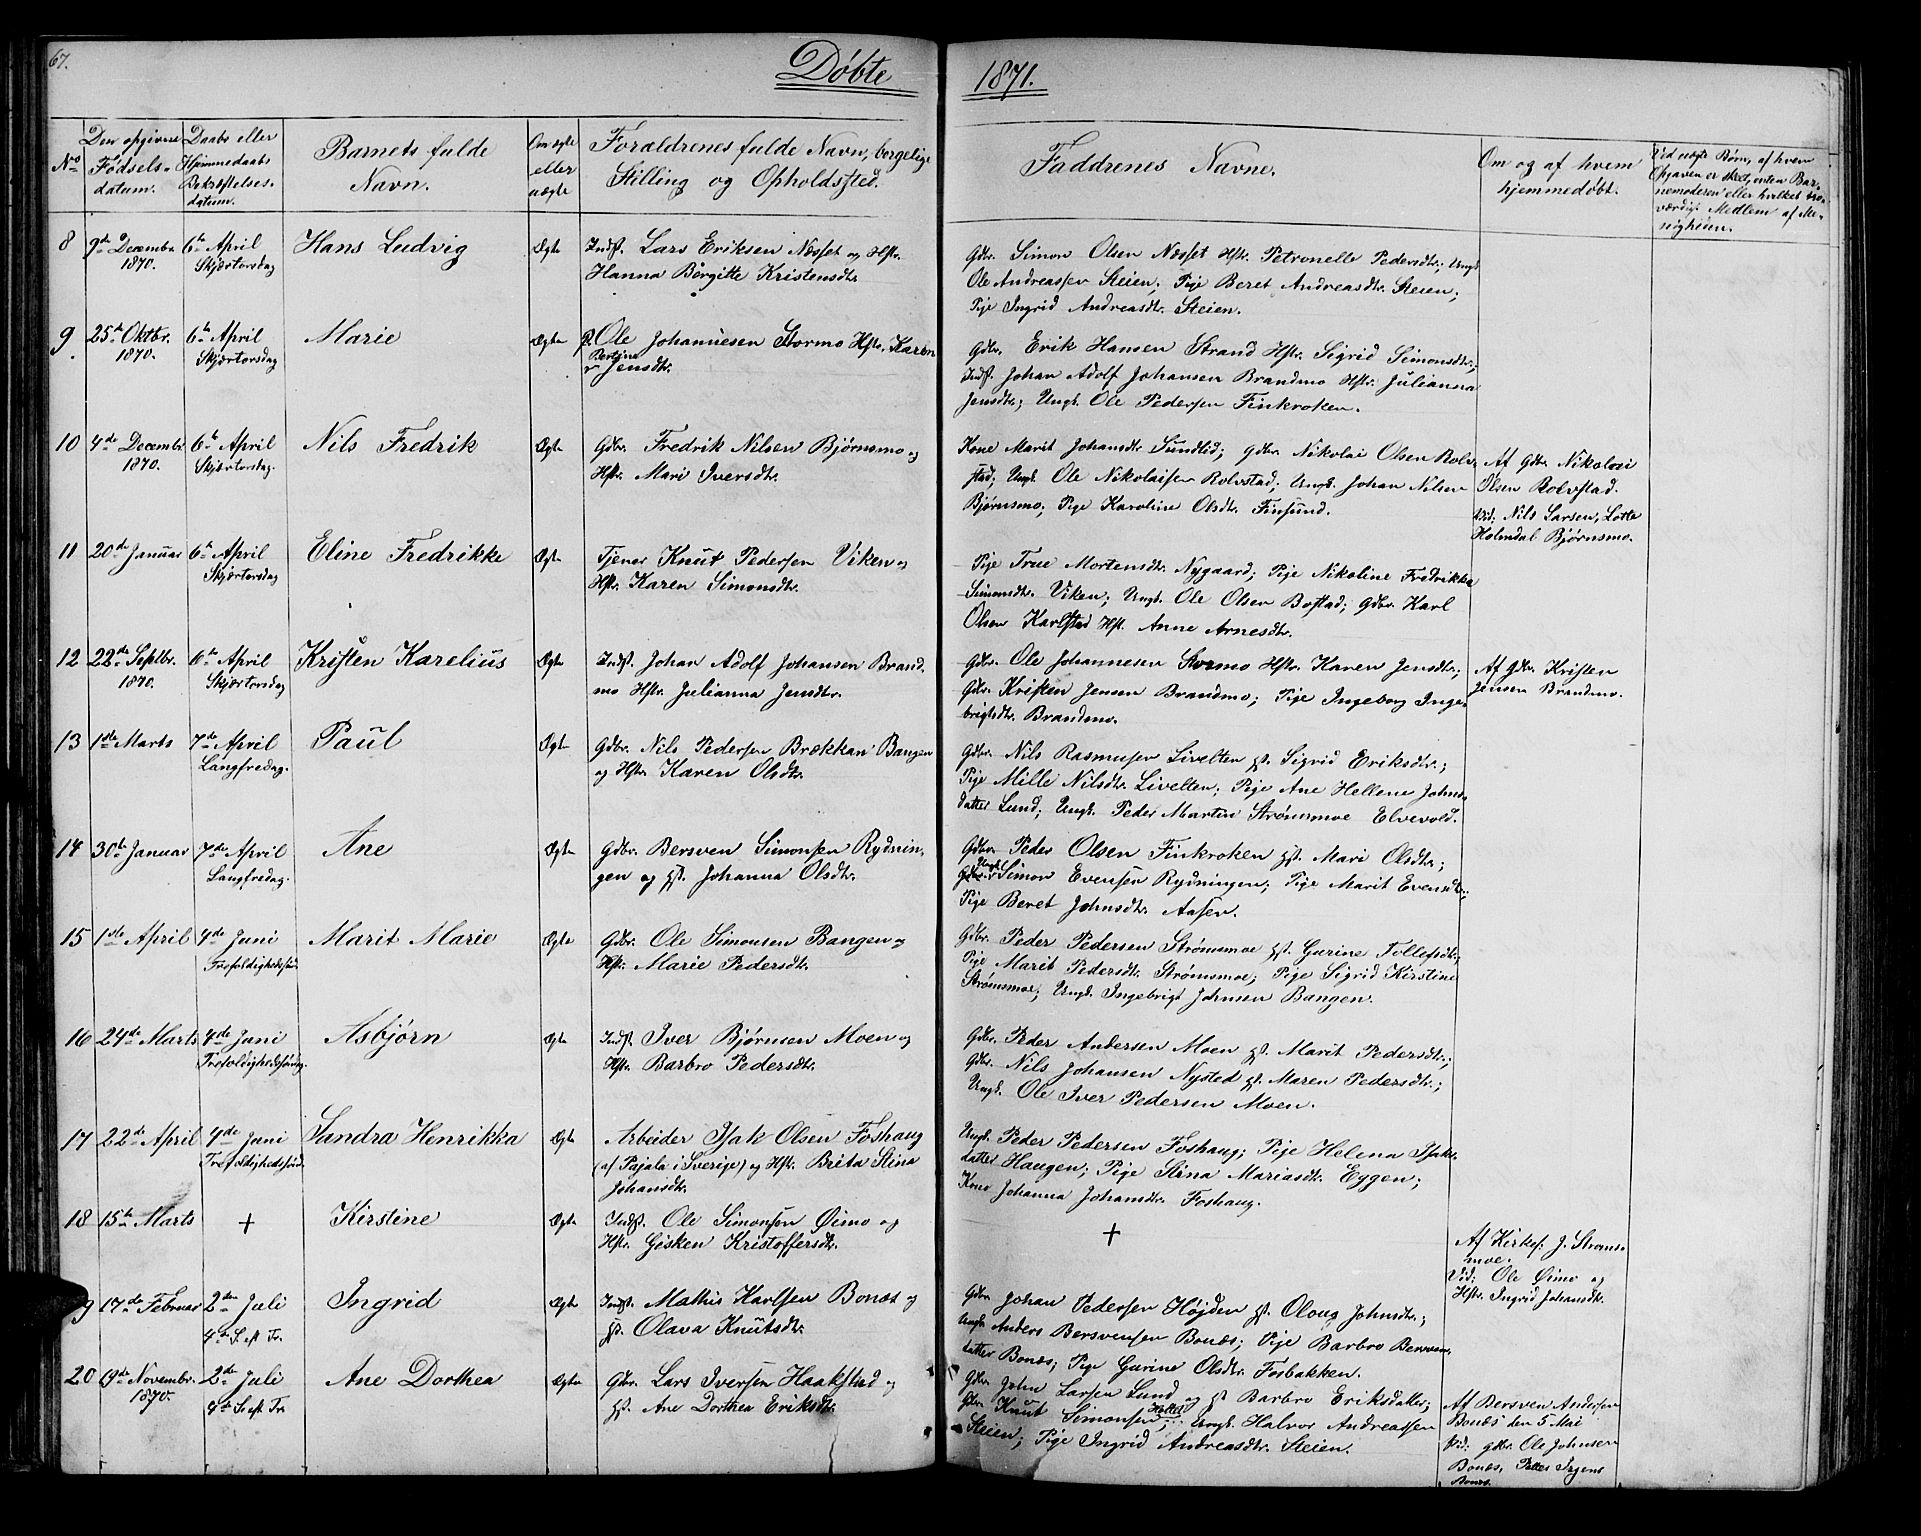 67.
Døbte
1871.
No
Den opgivne Fødsels-datum.
Daabs eller Hjemmedaabs Bekræftelses-datum.
Barnets fulde Navn.
Om ægte eller uægte
Forældrenes fulde Navn, borgelige Stilling og Opholdsted.
Faddrenes Navne.
Om og af hvem hjemmedøbt.
Ved uægte Børn, af hvem Opgaven er skeet, enten Barnemoderen eller hvilket troværdigt Medlem af Menigheden.
8
9de Decembr 1870.
6te April Skjærtorsdag
Hans Ludvig
Ægte
Indst. Lars Eriksen Næsset og Hstr.
Hanna Børgitte Kristensdtr.
Gdbr. Simon Olsen Næsset Hstr. Petronelle Pedersdtr.; Ungk.
Ole Andreassen Steien; Pige Beret Andreasdtr. Steien;
Pige Ingrid Andreasdtr. Steien.
9
25de Oktbr. 1870.
6te April Skjærtorsdag
Marie
Ægte
Ole Johannesen Stormo Hstr. Karen
Bertine Jensdtr.
Gdbr. Erik Hansen Strand Hstr. Sigrid Simonsdtr.;
Indst. Johan Adolf Johansen Brandmo Hstr. Julianna
Jensdtr; Ungk. Ole Pedersen Finkroken.
10
4de Decembr 1870.
6te April Skjærtorsdag.
Nils Fredrik
Ægte
Gdbr. Fredrik Nilsen Bjørnsmo og
Hstr. Mari Iversdtr.
Kone Marit Johansdtr. Sundlid; Gdbr. Nikolai Olsen Rolv-
stad; Ungk. Ole Nikolaisen Rolvstad; Ungk. Johan Nilsen
Bjørnsmo; Pige Karoline Olsdtr. Finsund.
Af Gdbr. Nikolai
Olsen Rolvstad.
Vid: Nils Larsen, Lotte
Holmdal Bjørnsmo.
11
20de Januar
6te April Skjærtorsdag
Eline Fredrikke
Ægte
Tjener Knut Pedersen Viken og
Hstr. Karen Simonsdtr.
Pige True Mortensdtr. Nygaard; Pige Nikoline Fredrikka
Simonsdtr. Viken; Ungk. Ole Olsen Bostad; Gdbr. Karl
Olsen Karlstad Hst. Anne Arnesdtr.
12
22de Septbr. 1870.
6te April Skjærtorsdag
Kristen Karelius
Ægte
Indst. Johan Adolf Johansen Brand-
mo Hstr. Julianna Jensdtr.
Gdbr. Ole Johannesen Stormo Hstr. Karen Jensdtr.;
Gdbr. Kristen Jensen Brandmo; Pige Ingeborg Inge-
brigtsdtr. Brandmo.
Af Gdbr. Kristen
Jensen Brandmo.
13
1ste Marts
7de April Langfredag.
Paul
Ægte
Gdbr. Nils Pedersen Brækkan Bangen
og Hstr. Karen Olsdtr.
Gdbr. Nils Rasmusen Livelten gst. Sigrid Eriksdtr.;
Pige Mille Nilsdtr. Livelten; Pige Ane Hellene Johns-
datter Lund; Ungk. Peder Martin Strømsmoe Elvevold.
14
30te Januar
7de April Langfredag.
Ane
Ægte
Gdbr. Bersven Simonsen Rydnin-
gen og gst. Johanna Olsdtr.
Gdbr Peder Olsen Finkroken gst. Mari Olsdtr.;
Ungk. Simon Evensen Rydningen; Pige Marit Evensdtr.;
Pige Beret Johnsdtr. Aasen.
15
1ste April
4de Juni Trefoldighedssøn.
Marit Marie
Ægte
Gdbr. Ole Simonsen Bangen og
Hstr. Marie Pedersdtr.
Gdbr. Peder Pedersen Strømsmoe gst. Gurine Tollefsdtr.;
Pige Marit Pedersdtr. Strømsmoe; Pige Sigrid Kirstine
Strømsmoe; Ungk. Ingebrigt Johnsen Bangen.
16
24de Marts
4de Juni Trefoldighedssøndag.
Asbjørn
Ægte
Indst. Iver Bjørnsen Moen og
Hstr. Barbro Pedersdtr.
Gdbr. Peder Andersen Moen gst. Marit Pedersdtr.;
Gdbr. Nils Johansen Nysted gst. Maren Pedersdtr.;
Ungk. Ole Iver Pedersen Moen.
17
22de April
4de Juni Trefoldighedssønd.
Sandra Henrikka
Ægte
Arbeider Isak Olsen Foshaug
(af Pajala i Sverige) og Hstr. Brita Stina
Johansdtr.
Ungk. Peder Pedersen Foshaug; Pige Helena Isaks-
datter Haugen; Pige Stina Mariasdtr. Eggen;
Kone Johanna Johansdtr. Foshaug.
18
15te Marts
+
Kirstine
Ægte
Indst. Ole Simonsen Øimo og
Hstr. Gisken Kristoffersdtr.
+
Af Kirkes: J. Strøms-
moe.
Vid: Ole Øimo og
Hstr. Ingrid Johansdtr.
9
17de Februar
2den Juli
4de S. eft. Tr.
Ingrid
Ægte
Indst. Mathis Karlsen Bonæs og
gst. Olava Knutsdtr.
Gdbr. Johan Pedersen Højden gst. Oloug Johnsdtr.;
Ungk. Anders Bersvensen Bonæs; Pige Barbro Bersven-
datter Bonæs; Pige Gurine Olsdtr. Fosbakken.
20
19de Novembr. 1870.
2de Juli
4de S. eft. Tr
Ane Dorthea
Ægte
Gdbr. Lars Iversen Haakstad og
gst. Ane Dorthea Eriksdtr.
Gdbr. John Larsen Lund og gst Barbro Eriksdatter;
Knut Simonsen; Ungk. Halvor Andreassen
Steien; Pige Ingrid Andreasdtr. Steien.
Af Bersven Andersen
Bonæs den 5 Mai
Vid: gdbr. Ole Johnsen
Bonæs, Petter
Bonæs.